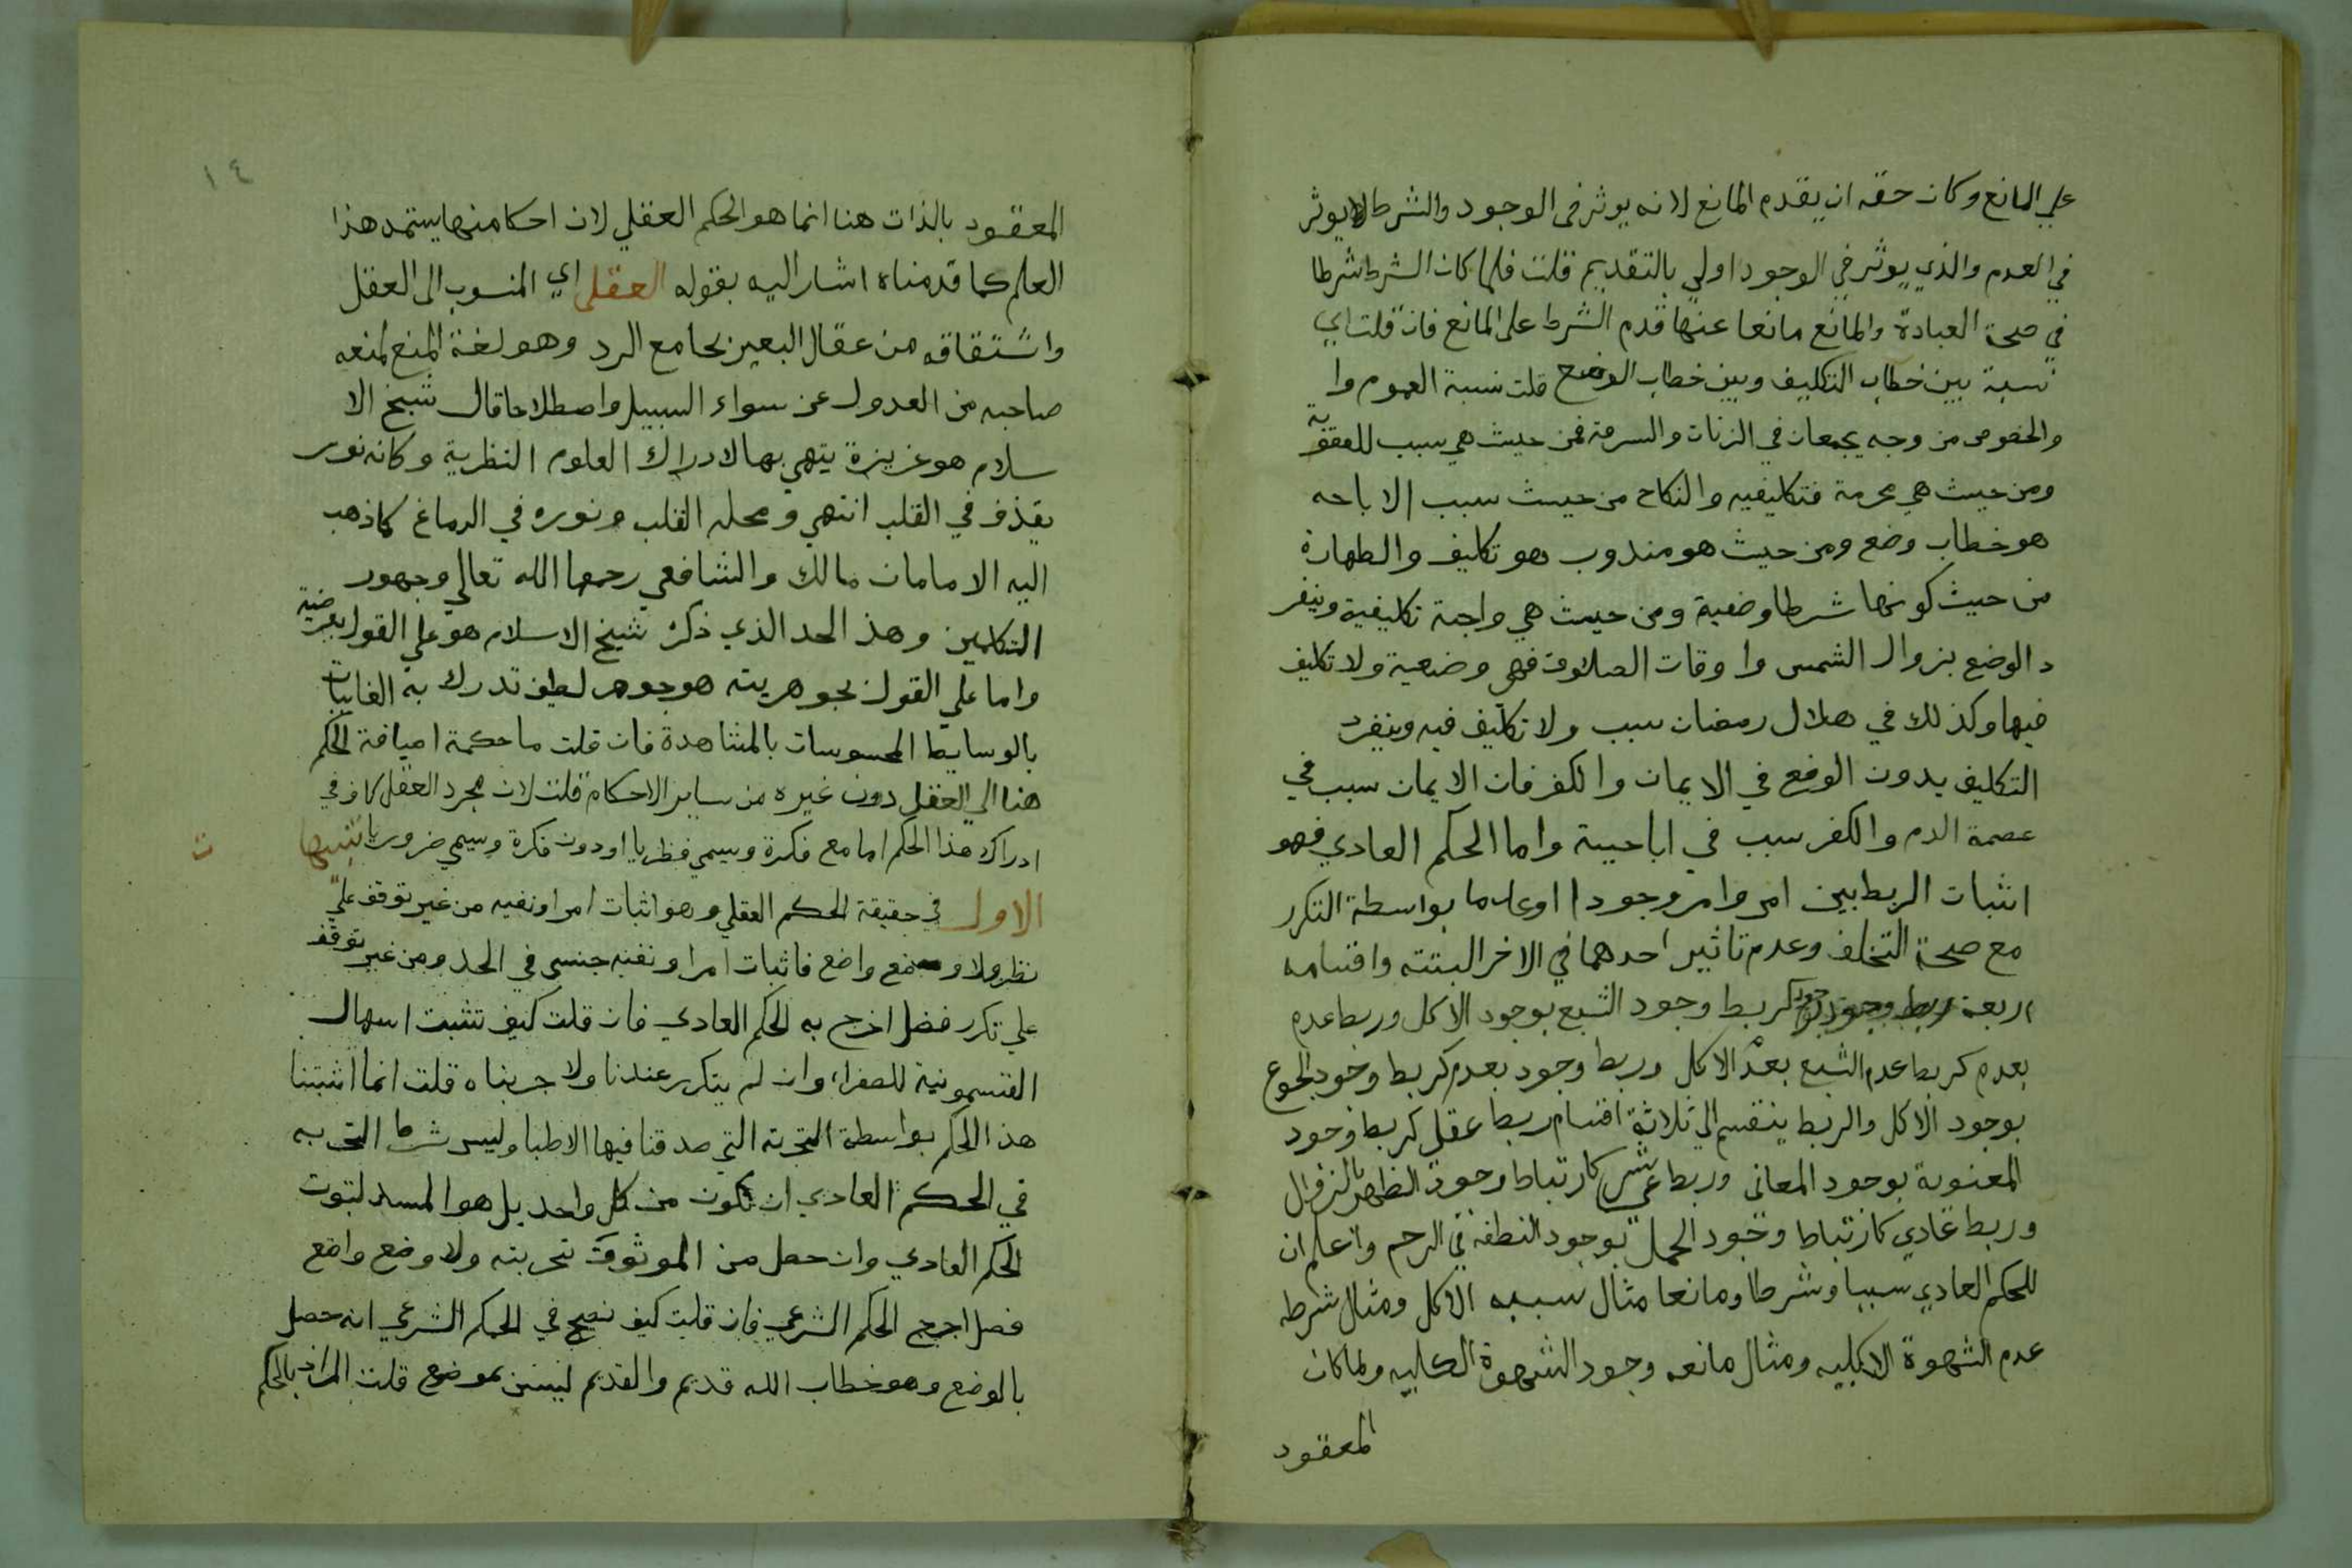 علي المانع وكان حقه ان يقدم المانع لانه يوثر فى الوجود والشرط لا يوثر
في العدم والذي يوثر في الوجود اولي بالتقديم قلت فلما كان الشرط شرطا
في صحة العبادة والمانع مانعا عنها قدم الشرط على المانع فان قلت اي
نسبة بين خطاب التكليف وبين خطاب الوضع قلت نسبة العموم وا
والخصوص من وجه يجمعان في الزنات والسرقة فمن حيث هي سبب للعقوبة
ومن حيث هي محرمة فتكليفيه والنكاح من حيث سبب الاباحه
هو خطاب وضع ومن حيث هو مندوب هو تكليف والطهارة
من حيث كونها شرطا وضعية ومن حيث هي واجبة تكليفية وينفر
د الوضع بزوال الشمس واوقات الصلاوة فهي وضعية ولا تكليف
فيها وكذلك في هلال رمضان سبب ولا تكليف فيه وينفرد
التكليف بدون الوضع في الايمان والكفر فان الايمان سبب في
عصمة الدم والكفر سبب في اباحيته واما الحكم العادي فهو
اثبات الربط بين امر وامر وجودا او عدما بواسطة التكرر
مع صحة التخلف وعدم تاثير احدهما في الاخر البتته واقسامه
اربعة ربط وجود بوجود كربط وجود الشبع بوجود الاكل وربط عدم
بعدم كربط عدم الشبع بعدم الاكل وربط وجود بعدم كربط وجود الجوع
بوجود الاكل والربط ينقسم الي ثلاثة اقسام ربط عقلي كربط وجود
المعنوية بوجود المعاني وربط شرعي كارتباط وجود الظهر بالزوال
وربط عادي كارتباط وجود الحمل بوجود النطفه في الرحم واعلم ان
للحكم العادي سببا وشرطا ومانعا مثال سببه الاكل ومثال شرطه
عدم الشهوة الاكليه ومثال مانعه وجود الشهوة الكلبيه ولما كان
المعقود
١٤
المعقود بالذات هنا انما هو الحكم العقلي لان احكامنها يستمد هذا
العلم كما قدمناه اشار اليه بقوله العقلى اي المنسوب الى العقل
واشتقاقه من عقال البعير بجامع الرد وهو لغة المنع لمنعه
صاحبه من العدول عن سواء السبيل واصطلاحا قال شيخ الا
سلام هو غريزة يتهيي بها لادراك العلوم النظرية وكانه نور
يقذف في القلب انتهي ومحله القلب ونوره في الدماغ كما ذهب
اليه الامامان مالك والشافعي رحمهما الله تعالي وجهور
المتكلمين وهذ الحد الذي ذكره شيخ الاسلام هو علي القول بعرضيته
واما علي القول بجوهريته هو جوهر لطيف تدرك به الغايبات
بالوسايط المحسوسات بالمشاهدة فان قلت ما حكمة اضافة الحكم
هنا الي العقل دون غيره من ساير الاحكام قلت لان مجرد العقل كاف في
ادراك هذا الحكم اما مع فكرة ويسمي نظريا او دون فكرة ويسمي ضروريا تنبيها
ت
الاول في حقيقة الحكم العقلي وهو اثبات امر او نفيه من غير توقف علي
نظر ولا وضع واضع فاثبات امر او نفيه جنس في الحد ومن غير توقف
علي تكرر فصل اخرج به الحكم العادي فان قلت كيف تثبت اسهال
القسمونية للصفراء وان لم يتكرر عندنا ولا جربناه قلت انما اثبتنا
هذ الحكم بواسطة التجربة التي صدقنا فيها الاطبا وليس شرط التجربه
في الحكم العادي ان تكون من كل واحد بل هو المسند لثبوت
الحكم العادي وان حصل من الموثوق بتجربته ولا وضع واضع
فصل اخرج الحكم الشرعي فان قلت كيف يصح في الحكم الشرعي انه حصل
بالوضع وهو خطاب الله قديم والقديم ليس بموضوع قلت المراد بالحكم